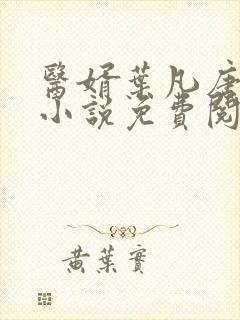 醫婿葉凡唐
小說免費閱
黃葉實